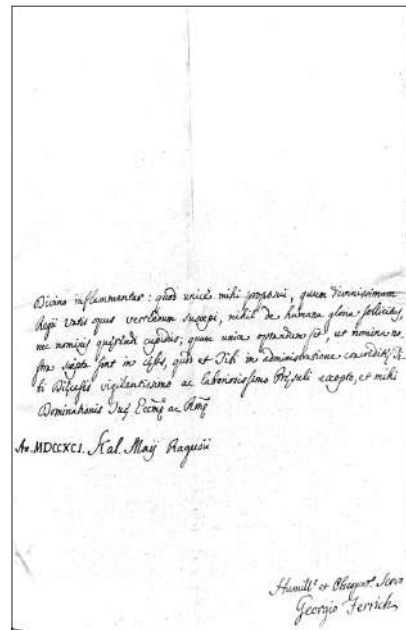 Divino inflammentur: quod unicè mihi proposui, quum divinissimum
Regii Vatis opus vertendum suscepi, nihil de humana gloria sollicitus,
nec nominis quærendi cupidus; quum unice optandum sit, ut nomina no-
stra scripta sint in Cœlis, quod et Tibi in administratione creditæ Ti-
bi Diœcesis vigilantissimo ac laboriosissimo Præsuli exopto, et mihi
Dominationis Tuæ Eccmæ ac Rmæ
An. MDCCXCI. Kal. Maij Ragusii
Humill.s et Obsequent.s Servo
Georgio Ferrich